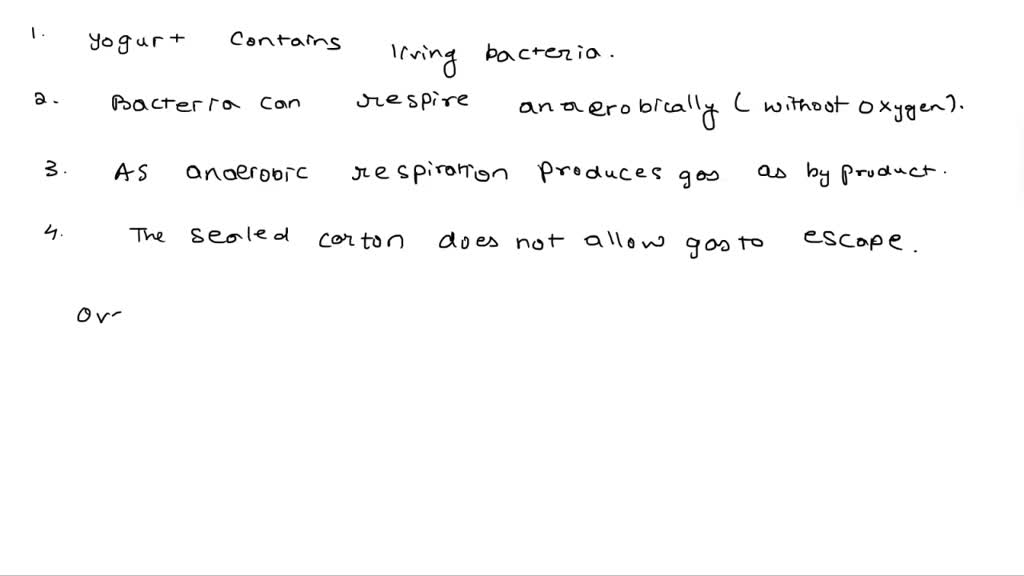 1. yogurt contains living bacteria.
2. Bacteria can respire anaerobically (without oxygen).
3. As anaerobic respiration produces gas as by product.
4. The sealed carton does not allow gas to escape.
Ov